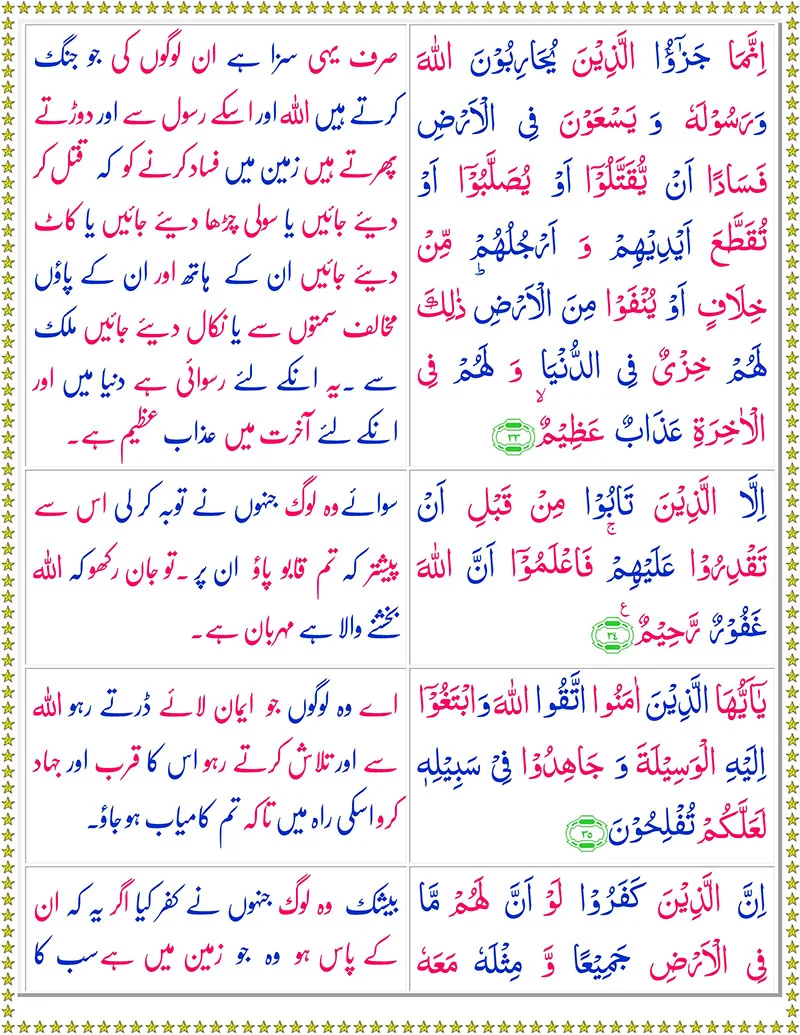 اِنَّمَا جَزٰٓؤُا الَّذِيْنَ يُحَارِبُوْنَ اللّٰهَ
وَرَسُوْلَهٗ وَ يَسْعَوْنَ فِى الْاَرْضِ
فَسَادًا اَنْ يُّقَتَّلُوْۤا اَوْ يُصَلَّبُوْۤا اَوْ
تُقَطَّعَ اَيْدِيْهِمْ وَ اَرْجُلُهُمْ مِّنْ
خِلَافٍ اَوْ يُنْفَوْا مِنَ الْاَرْضِؕ ذٰلِكَ
لَهُمْ خِزْىٌ فِى الدُّنْيَا وَ لَهُمْ فِى
الْاٰخِرَةِ عَذَابٌ عَظِيْمٌۙ ٣٣
صرف یہی سزا ہے ان لوگوں کی جو جنگ
کرتے ہیں اللہ اور اسکے رسول سے اور دوڑتے
پھرتے ہیں زمین میں فساد کرنے کو کہ قتل کر
دیئے جائیں یا سولی چڑھا دیئے جائیں یا کاٹ
دیئے جائیں ان کے ہاتھ اور ان کے پاؤں
مخالف سمتوں سے یا نکال دیئے جائیں ملک
سے ۔یہ انکے لئے رسوائی ہے دنیا میں اور
انکے لئے آخرت میں عذاب عظیم ہے۔
اِلَّا الَّذِيْنَ تَابُوْا مِنْ قَبْلِ اَنْ
تَقْدِرُوْا عَلَيْهِمْۚ فَاعْلَمُوْۤا اَنَّ اللّٰهَ
غَفُوْرٌ رَّحِيْمٌ ع ٣٤
سوائے وہ لوگ جنہوں نے توبہ کر لی اس سے
پیشتر کہ تم قابو پاؤ ان پر ۔تو جان رکھو کہ اللہ
بخشنے والا ہے مہربان ہے۔
يٰۤاَيُّهَا الَّذِيْنَ اٰمَنُوا اتَّقُوا اللّٰهَ وَابْتَغُوْۤا
اِلَيْهِ الْوَسِيْلَةَ وَ جَاهِدُوْا فِىْ سَبِيْلِهٖ
لَعَلَّكُمْ تُفْلِحُوْنَ ٣٥
اے وہ لوگوں جو ایمان لائے ڈرتے رہو اللہ
سے اور تلاش کرتے رہو اس کا قرب اور جہاد
کرو اسکی راہ میں تاکہ تم کامیاب ہو جاؤ۔
اِنَّ الَّذِيْنَ كَفَرُوْا لَوْ اَنَّ لَهُمْ مَّا
فِى الْاَرْضِ جَمِيْعًا وَّ مِثْلَهٗ مَعَهٗ
بیشک وہ لوگ جنہوں نے کفر کیا اگر یہ کہ ان
کے پاس ہو وہ جو زمین میں ہے سب کا